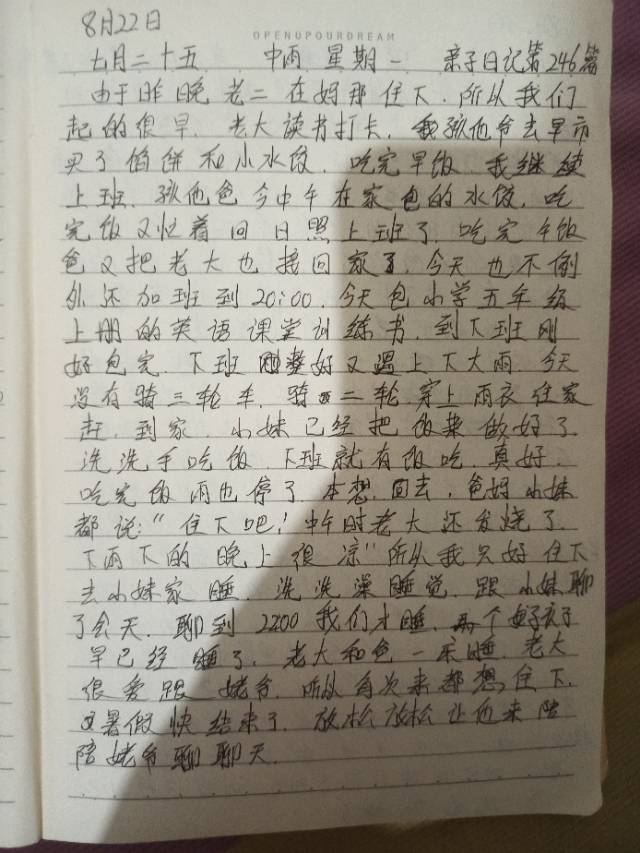 8月22日
OPENUPOURDREAM
七月二十五 中雨 星期一 亲子日记第246篇
由于昨晚老二在妈那住下.所以我们
起的很早.老大读书打卡.我孩他爸去早市
买了馅饼和小水饺.吃完早饭.我继续
上班.孩他爸今中午在家包的水饺.吃
完饭又忙着回日照上班了.吃完午饭
爸又把老大也接回家了.今天也不例
外还加班到20:00.今天包小学五年级
上册的英语课堂训练书.到下班刚
好包完.下班刚好又遇上下大雨.今天
没有骑三轮车.骑二轮.穿上雨衣往家
赶.到家.小妹已经把饭菜做好了.
洗洗手吃饭.下班就有饭吃.真好.
吃完饭雨也停了.本想回去,爸妈小妹
都说:"住下吧!中午时老大还发烧了.
下雨下的晚上很凉"所以我只好住下
去小妹家睡.洗洗澡睡觉.跟小妹聊
了会天.聊到2200我们才睡.两个孩子
早已经睡了.老大和爸一床睡.老大
很爱跟姥爷.所以每次来都想住下.
暑假快结束了.放松放松让他来陪
陪姥爷聊聊天.